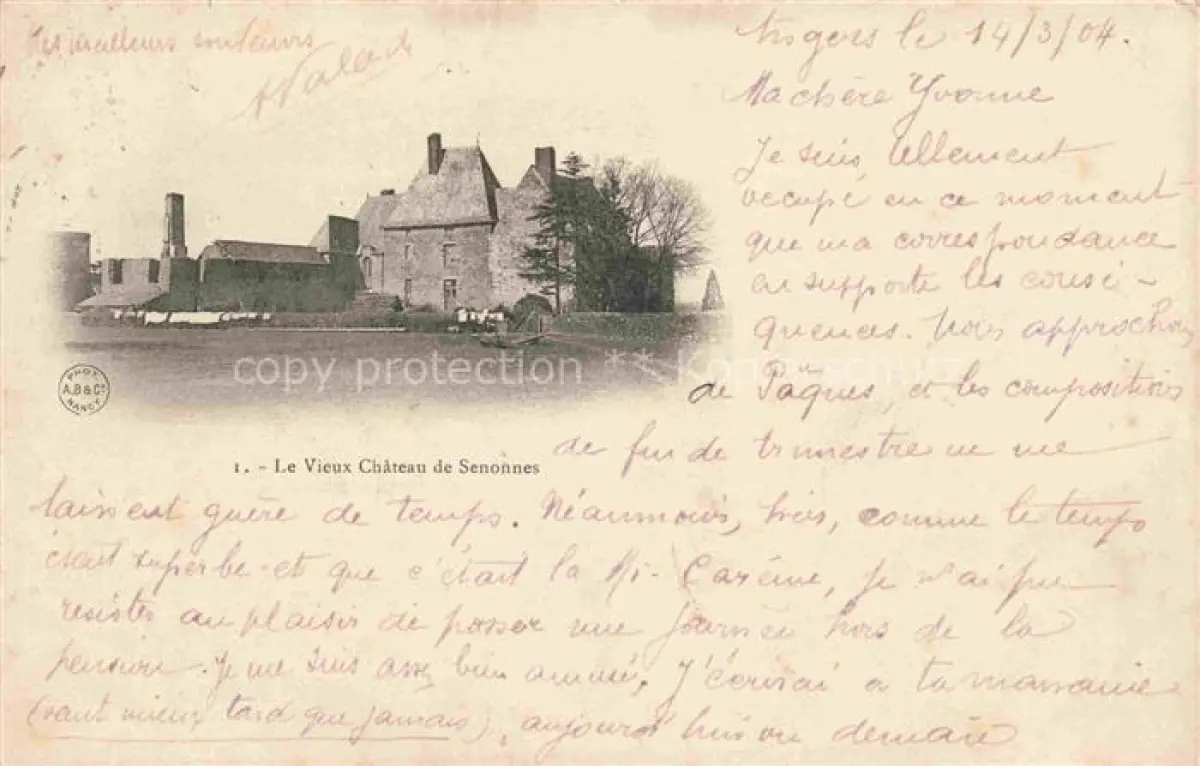 Mes meilleurs souvenirs
Angers le 14/3/04.
Ma chère Yvonne
Je suis tellement
occupé en ce moment
que ma correspondance
en supporte les consé-
quences. Nous approchons
de Pâques, et les compositions
de fin de trimestre ne me
laissent guère de temps. Néanmoins, hier, comme le temps
était superbe et que c'était la Mi-Carême, je n'ai pu
resister au plaisir de passer une journée hors de la
pension. Je me suis assez bien amusé. J'écrirai à ta maman
(vaut mieux tard que jamais), aujourd'hui ou demain
PHOT.
A.B & Cie
NANCY
1. - Le Vieux Château de Senonnes
copy protection ** Kopierschutz